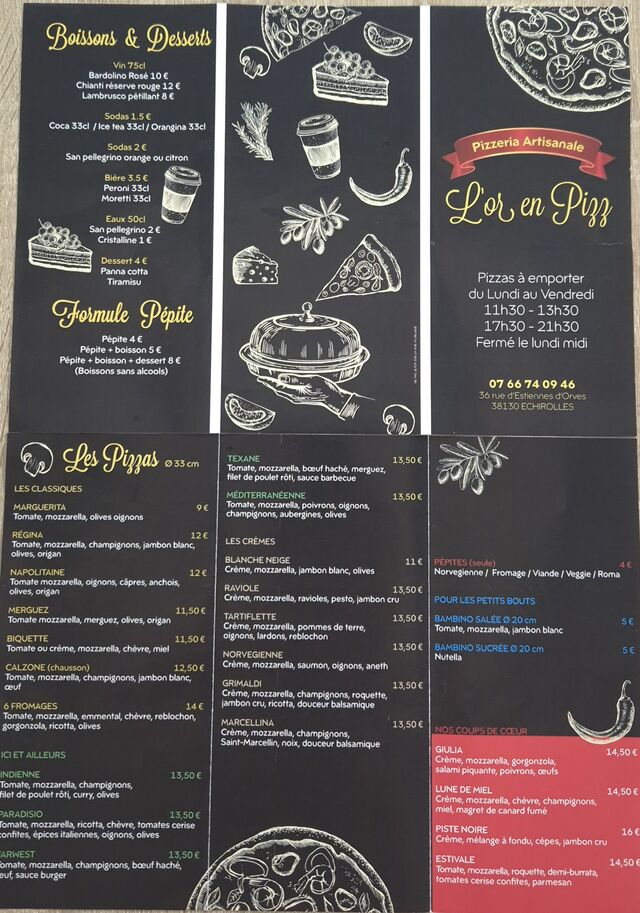 Boissons & Desserts
Vin 75cl
Bardolino Rosé 10 €
Chianti réserve rouge 12 €
Lambrusco pétillant 8 €
Sodas 1.5 €
Coca 33cl / Ice tea 33cl / Orangina 33cl
Sodas 2 €
San pellegrino orange ou citron
Bière 3.5 €
Peroni 33cl
Moretti 33cl
Eaux 50cl
San pellegrino 2 €
Cristalline 1 €
Dessert 4 €
Panna cotta
Tiramisu
Formule Pépite
Pépite 4 €
Pépite + boisson 5 €
Pépite + boisson + dessert 8 €
(Boissons sans alcools)
Pizzeria Artisanale
L'or en Pizz
Pizzas à emporter
du Lundi au Vendredi
11h30 - 13h30
17h30 - 21h30
Fermé le lundi midi
07 66 74 09 46
36 rue d'Estiennes d'Orves
38130 ECHIROLLES
Les Pizzas Ø 33 cm
LES CLASSIQUES
MARGUERITA 9 €
Tomate, mozzarella, olives oignons
RÉGINA 12 €
Tomate, mozzarella, champignons, jambon blanc,
olives, origan
NAPOLITAINE 12 €
Tomate mozzarella, oignons, câpres, anchois,
olives, origan
MERGUEZ 11,50 €
Tomate mozzarella, merguez, olives, origan
BIQUETTE 11,50 €
Tomate ou crème, mozzarella, chèvre, miel
CALZONE (chausson) 12,50 €
Tomate, mozzarella, champignons, jambon blanc,
œuf
6 FROMAGES 14 €
Tomate, mozzarella, emmental, chèvre, reblochon,
gorgonzola, ricotta, olives
ICI ET AILLEURS
INDIENNE 13,50 €
Tomate, mozzarella, champignons,
filet de poulet rôti, curry, olives
PARADISIO 13,50 €
Tomate, mozzarella, ricotta, chèvre, tomates cerise
confites, épices italiennes, oignons, olives
FARWEST 13,50 €
Tomate, mozzarella, champignons, bœuf haché,
œuf, sauce burger
TEXANE 13,50 €
Tomate, mozzarella, bœuf haché, merguez,
filet de poulet rôti, sauce barbecue
MÉDITERRANÉENNE 13,50 €
Tomate, mozzarella, poivrons, oignons,
champignons, aubergines, olives
LES CRÈMES
BLANCHE NEIGE 11 €
Crème, mozzarella, jambon blanc, olives
RAVIOLE 13,50 €
Crème, mozzarella, ravioles, pesto, jambon cru
TARTIFLETTE 13,50 €
Crème, mozzarella, pommes de terre,
oignons, lardons, reblochon
NORVEGIENNE 13,50 €
Crème, mozzarella, saumon, oignons, aneth
GRIMALDI 13,50 €
Crème, mozzarella, champignons, roquette,
jambon cru, ricotta, douceur balsamique
MARCELLINA 13,50 €
Crème, mozzarella, champignons,
Saint-Marcellin, noix, douceur balsamique
PÉPITES (seule) 4 €
Norvegienne / Fromage / Viande / Veggie / Roma
POUR LES PETITS BOUTS
BAMBINO SALÉE Ø 20 cm 5 €
Tomate, mozzarella, jambon blanc
BAMBINO SUCRÉE Ø 20 cm 5 €
Nutella
NOS COUPS DE CŒUR
GIULIA 14,50 €
Crème, mozzarella, gorgonzola,
salami piquante, poivrons, œufs
LUNE DE MIEL 14,50 €
Crème, mozzarella, chèvre, champignons,
miel, magret de canard fumé
PISTE NOIRE 16 €
Crème, mélange à fondu, cèpes, jambon cru
ESTIVALE 14,50 €
Tomate, mozzarella, roquette, demi-burrata,
tomates cerise confites, parmesan